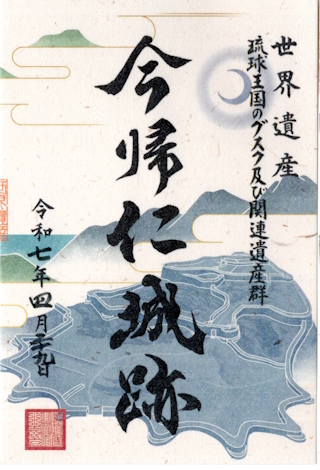 世界遺産
琉球王国のグスク及び関連遺産群
今帰仁城跡
令和七年四月二十九日